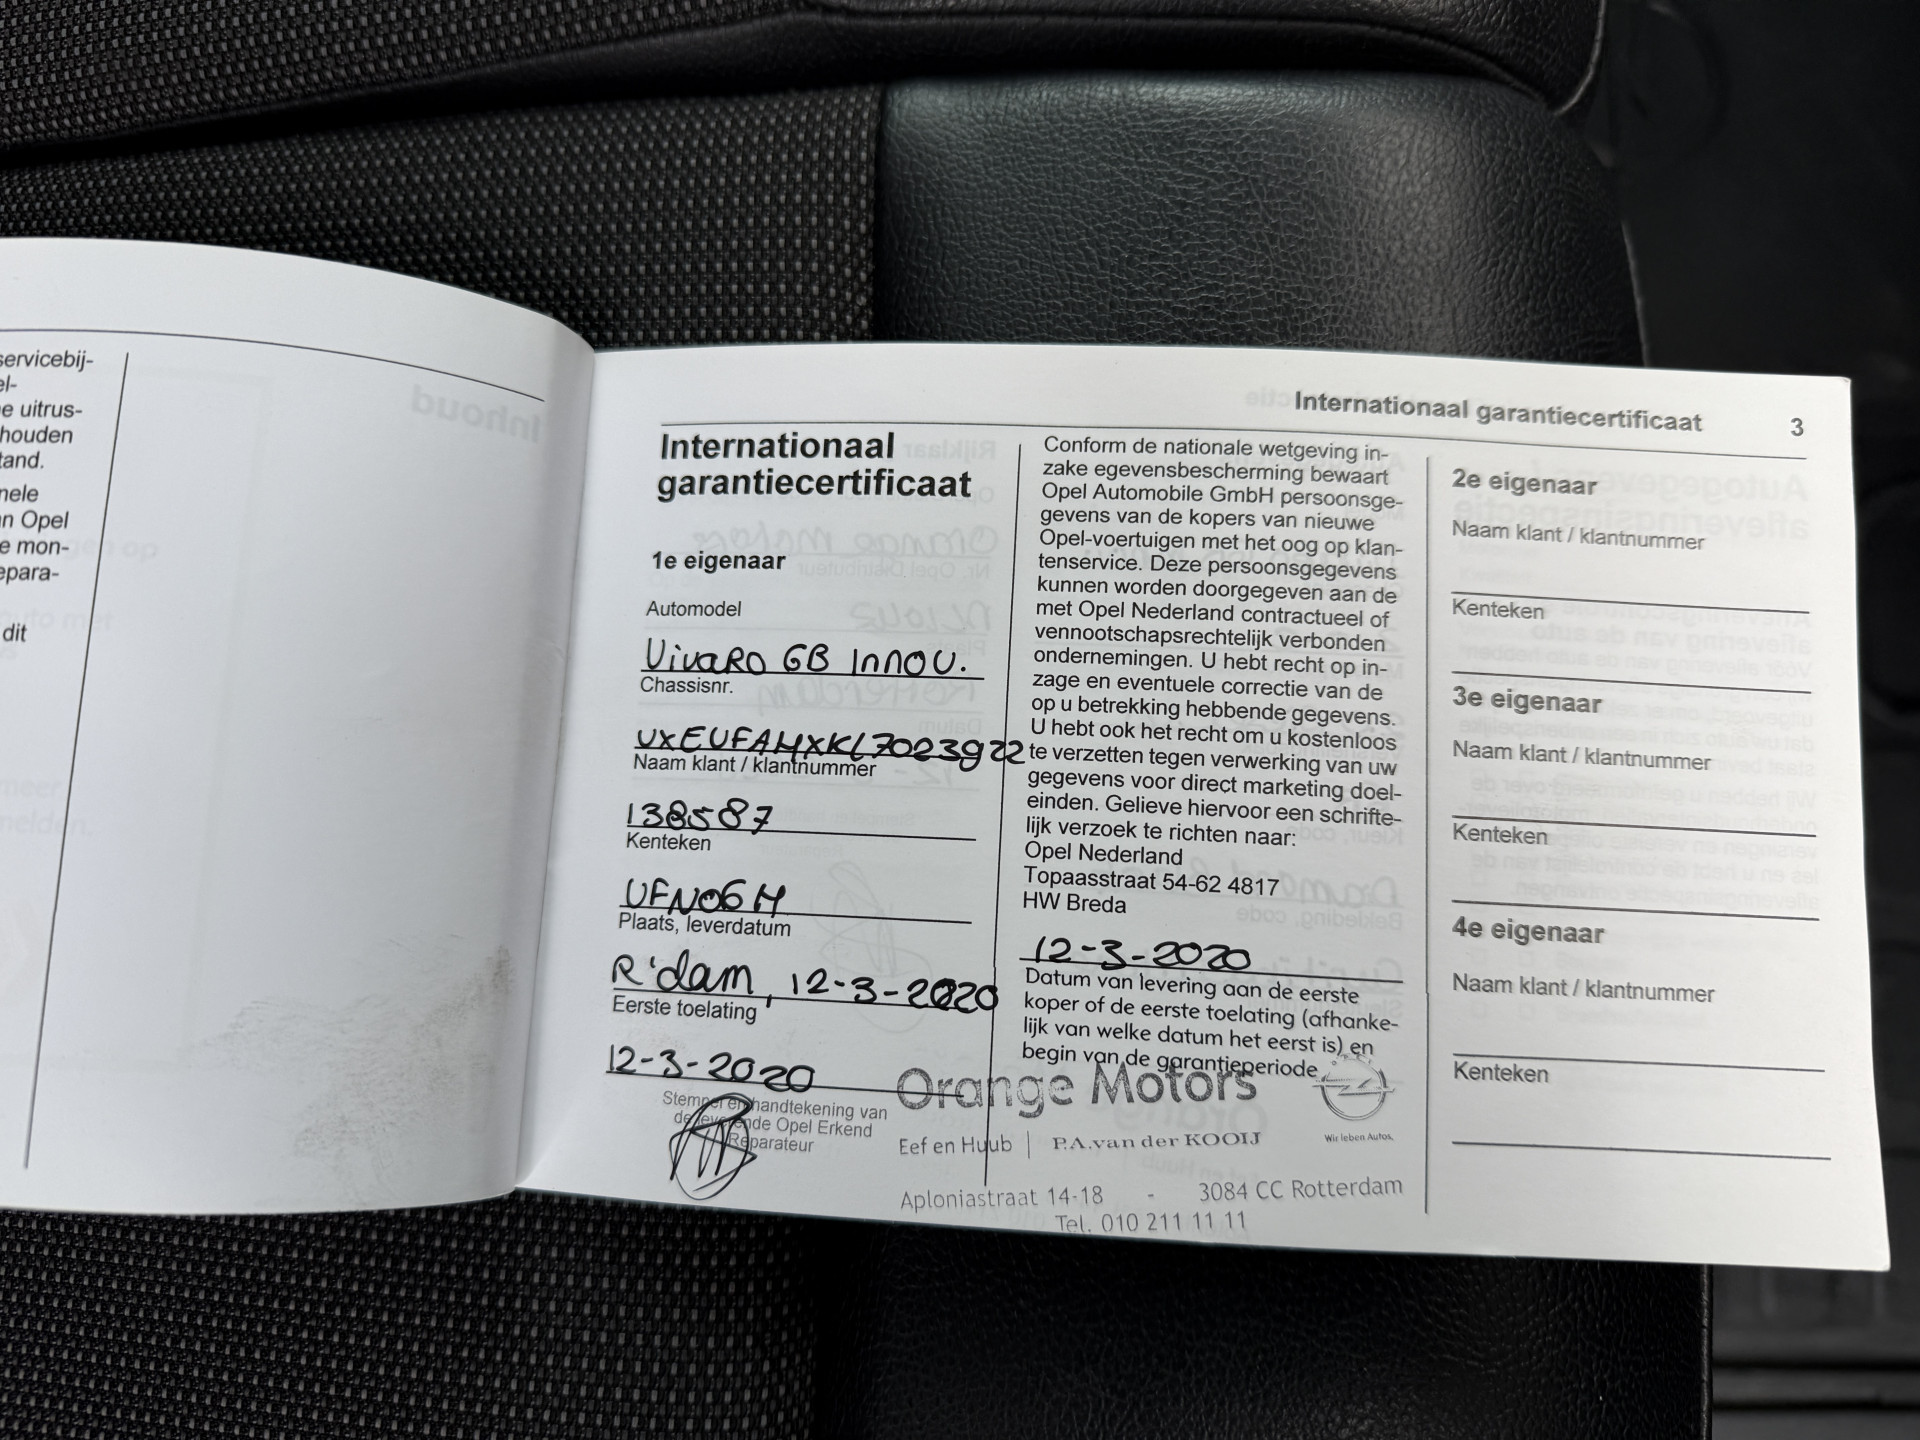 servicebij-
el-
e uitrus-
houden
tand.
nele
n Opel
e mon-
epara-
dit
Internationaal garantiecertificaat 3
Internationaal
garantiecertificaat
1e eigenaar
Automodel
Vivaro GB Innov.
Chassisnr.
VXEVFAHXKL7023922
Naam klant / klantnummer
138587
Kenteken
VFN06H
Plaats, leverdatum
R'dam, 12-3-2020
Eerste toelating
12-3-2020
Stempel en handtekening van
de leverende Opel Erkend
Reparateur
Conform de nationale wetgeving in-
zake egevensbescherming bewaart
Opel Automobile GmbH persoonsge-
gevens van de kopers van nieuwe
Opel-voertuigen met het oog op klan-
tenservice. Deze persoonsgegevens
kunnen worden doorgegeven aan de
met Opel Nederland contractueel of
vennootschapsrechtelijk verbonden
ondernemingen. U hebt recht op in-
zage en eventuele correctie van de
op u betrekking hebbende gegevens.
U hebt ook het recht om u kosteloos
te verzetten tegen verwerking van uw
gegevens voor direct marketing doel-
einden. Gelieve hiervoor een schrifte-
lijk verzoek te richten naar:
Opel Nederland
Topaasstraat 54-62 4817
HW Breda
12-3-2020
Datum van levering aan de eerste
koper of de eerste toelating (afhanke-
lijk van welke datum het eerst is) en
begin van de garantieperiode
Orange Motors
Eef en Huub | P.A.van der KOOIJ
Wir leben Autos.
Aploniastraat 14-18 - 3084 CC Rotterdam
Tel. 010 211 11 11
2e eigenaar
Naam klant / klantnummer
Kenteken
3e eigenaar
Naam klant / klantnummer
Kenteken
4e eigenaar
Naam klant / klantnummer
Kenteken